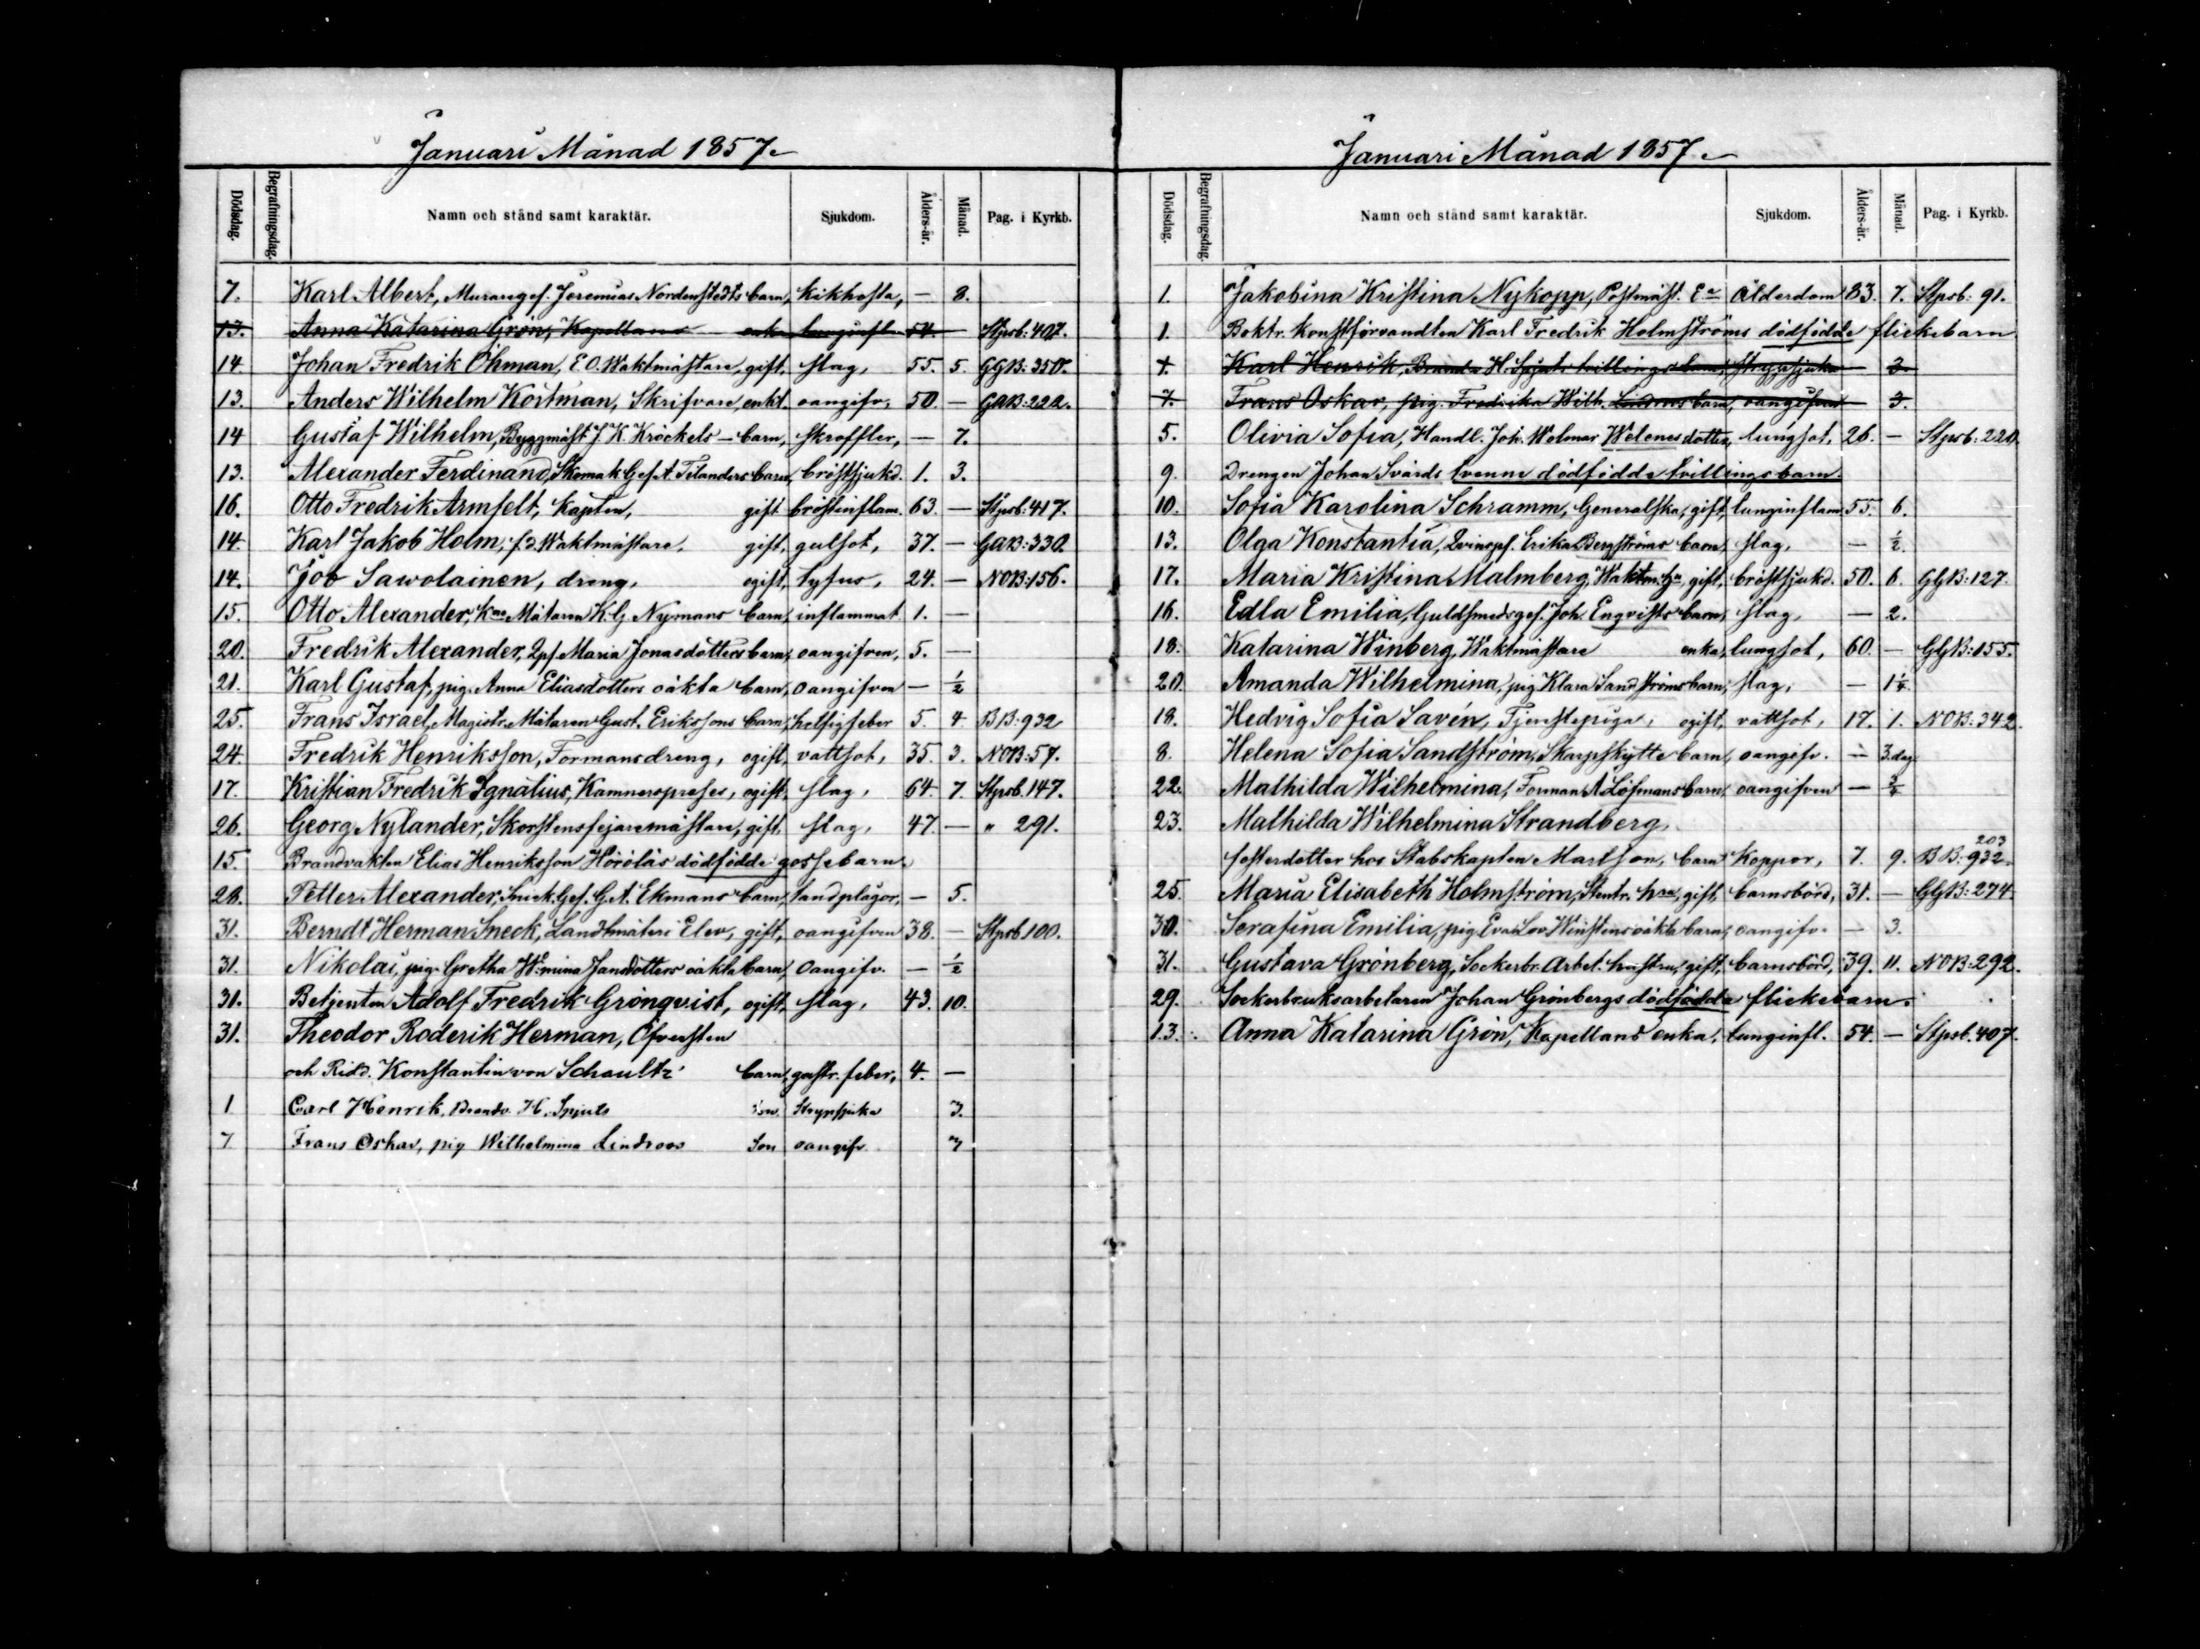 Januari Månad 1857.
Dödsdag. Begrafningsdag. Namn och stånd samt karaktär. Sjukdom. Ålders-år. Månad. Pag. i Kyrkb.
7. Karl Albert, Muraregef. Jeremias Nordenstedts barn, kikhosta, — 8.
13. Anna Katarina Grön, Kapellans enka lunginfl. 54. — Stpsb: 407.
14 Johan Fredrik Öhman, E.O. Waktmästare, gift, slag, 55. 5. GGB: 350.
13. Anders Wilhelm Körtman, Skrifvare, enkl. oangifv, 50. — GAB: 222.
14 Gustaf Wilhelm, Byggmäst. J. K. Kröckels — barn, skroffler, — 7.
13. Alexander Ferdinand, Skomak. Gef. A. Tilanders barn, bröstsjukd. 1. 3.
16. Otto Fredrik Armfelt, kapten, gift bröstinflam. 63. — Stpsb: 417.
14. Karl Jakob Holm, f.d. Waktmästare, gift, gulsot, 37. — GAB: 330.
14. Job Sawolainen, dreng, ogift, tyfus, 24. — NOB: 156.
15. Otto Alexander, Mätaren K. G. Nymans barn, inflammat. 1. —
20. Fredrik Alexander, Qpf. Maria Jonasdotters barn, oangifven, 5. —
21. Karl Gustaf, pig. Anna Eliasdotters oäkta barn, oangifven — ½
25. Frans Israel, Magistr. Mätaren Gust. Erikssons barn, hetsigfeber 5. 4. BB: 932
24. Fredrik Henriksson, Formansdreng, ogift, vattsot, 35. 3. NOB: 57.
17. Kristian Fredrik Ignatius, Kamnerspreses, ogift, slag, 64. 7. Stpsb. 147.
26. Georg Nylander, Skorstensfejaremästare, gift, slag, 47. — " 291.
15. Brandvakten Elias Henriksson Höröläs dödfödde gossebarn.
28. Petter Alexander, Snick. Gef. G. A. Ekmans barn, tandplågor, — 5.
31. Berndt Herman Sneck, Landtmäteri Elev, gift, oangifven 38. — Stpsb 100.
31. Nikolai, pig. Gretha W:mina Jansdotters oäkta barn, oangifv. — ½
31. Betjenten Adolf Fredrik Grönqvist, ogift, slag, 43. 10.
31. Theodor Roderik Herman, Öfversten
och Ridd. Konstantin von Schoultz' barn, gastr. feber, 4. —
1 Carl Henrik, Brandv. H. Spjuts son Strypsjuka 3.
7 Frans Oskar, pig Wilhelmina Lindroos Son oangifv. 7
Januari Månad 1857.
Dödsdag. Begrafningsdag. Namn och stånd samt karaktär. Sjukdom. Ålders-år. Månad. Pag. i Kyrkb.
1. Jakobina Kristina Nykopp, Postmäst. Ea ålderdom 83. 7. Stpsb: 91.
1. Boktr. konstförvandten Karl Fredrik Holmströms dödfödde flickebarn
1. Karl Henrik, Brandv H. Spjuts tvillingsbarn, strypsjuka — 3.
7. Frans Oskar, pig. Fredrika Wilh. barn, oangifven — 3.
5. Olivia Sofia, Handl. Joh. Wolmar Welenes dotter, lungsot, 26. — Stpsb: 220.
9. Drengen Johan Svärds tvenne dödfödda tvillingsbarn.
10. Sofia Karolina Schramm, Generalska, gift, lunginflam. 55. 6.
13. Olga Konstantia, Qvinspf. Erika Bergströms barn, slag, — ½.
17. Maria Kristina Malmberg, Waktm. Ha, gift, bröstsjukd. 50. 6. GGB: 127.
16. Edla Emilia, Guldsmedsgef. Joh. Engvists barn, slag, — 2.
18. Katarina Winberg, Waktmästare enka, lungsot, 60. — GGB: 155.
20. Amanda Wilhelmina, pig Klara Sandströms barn, slag, — 1¼.
18. Hedvig Sofia Savén, Tjenstepiga, ogift, vattsot, 17. 1. NOB: 342.
8. Helena Sofia Sandström, Skarpskytte barn, oangifv. — 3. dag
22. Mathilda Wilhelmina, Forman A Löfmans barn, oangifven — ¾
23. Mathilda Wilhelmina Strandberg,
203
fosterdotter hos Stabskapten Martson, barn koppor, 7. 9. BB: 932.
25. Maria Elisabeth Holmström, Stentr. hru, gift, barnsbörd, 31. — GGB: 274.
30. Serafina Emilia, pig Eva Lov. Winstens oäkta barn, oangifv. — 3.
31. Gustava Grönberg, Sockerbr. Arbet. hustru, gift, barnsbörd, 39. 11. NOB: 292.
29. Sockerbruksarbetaren Johan Grönbergs dödfödda flickebarn.
13. Anna Katarina Grön, Kapellans enka, lunginfl. 54. — Stpsb. 407.